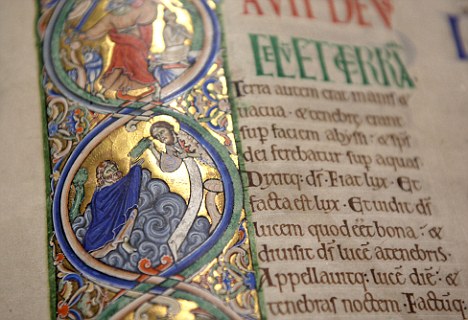 AVIT DEV
CELV ET TERRA
Terra autem erat inanis &
uacua · & tenebre erant
sup faciem abyssi · & sps
dei ferebatur sup aquas
Dixitq; ds · Fiat lux · Et
facta est lux · Et uidit ds
lucem quod eet bona · &
diuisit ds luce a tenebris ·
Appellauitq; luce die · &
tenebras noctem · Factum